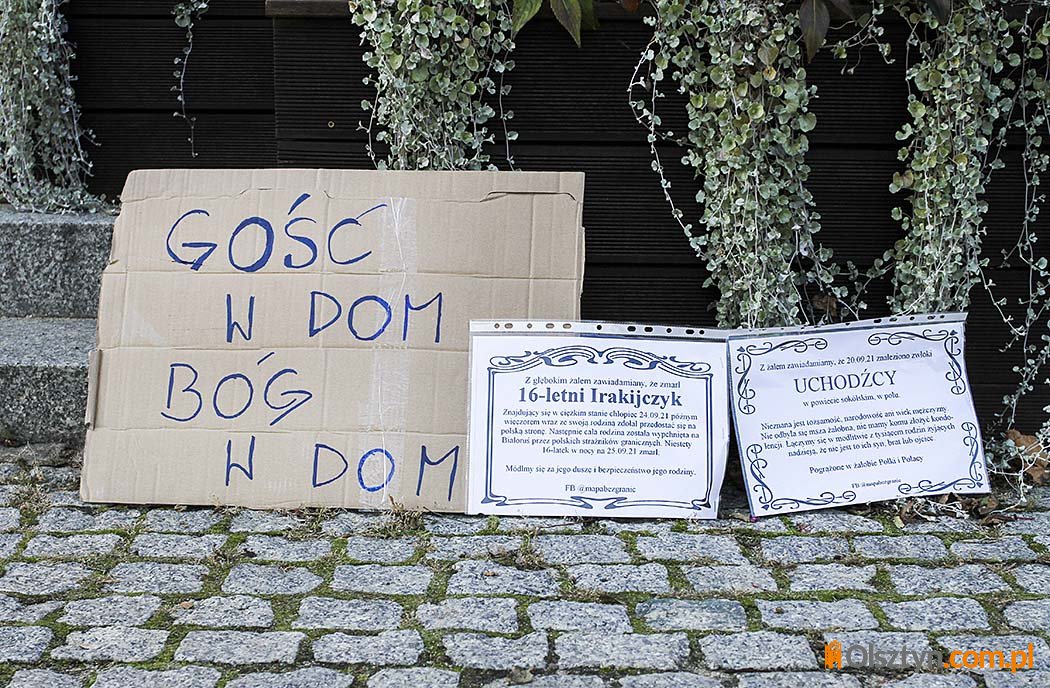 GOŚĆ
W DOM
BÓG
W DOM
Z głębokim żalem zawiadamiany, że zmarł
16-letni Irakijczyk
Znajdujący się w ciężkim stanie chłopiec 24.09.21 późnym
wieczorem wraz ze swoją rodziną zdołał przedostać się na
polską stronę. Następnie cała rodzina została wypchnięta na
Białoruś przez polskich strażników granicznych. Niestety
16-latek w nocy na 25.09.21 zmarł.
Módlmy się za jego duszę i bezpieczeństwo jego rodziny.
FB @mapabezgranic
Z żalem zawiadamiamy, że 20.09.21 znaleziono zwłoki
UCHODŹCY
w powiecie sokólskim, w polu.
Nieznana jest tożsamość, narodowość ani wiek mężczyzny.
Nie odbyła się msza żałobna, nie mamy komu złożyć kondo-
lencji. Łączymy się w modlitwie z tysiącem rodzin żyjących
nadzieją, że nie jest to ich syn, brat lub ojciec.
Pogrążone w żałobie Polki i Polacy
FB @mapabezgranic
Olsztyn.com.pl